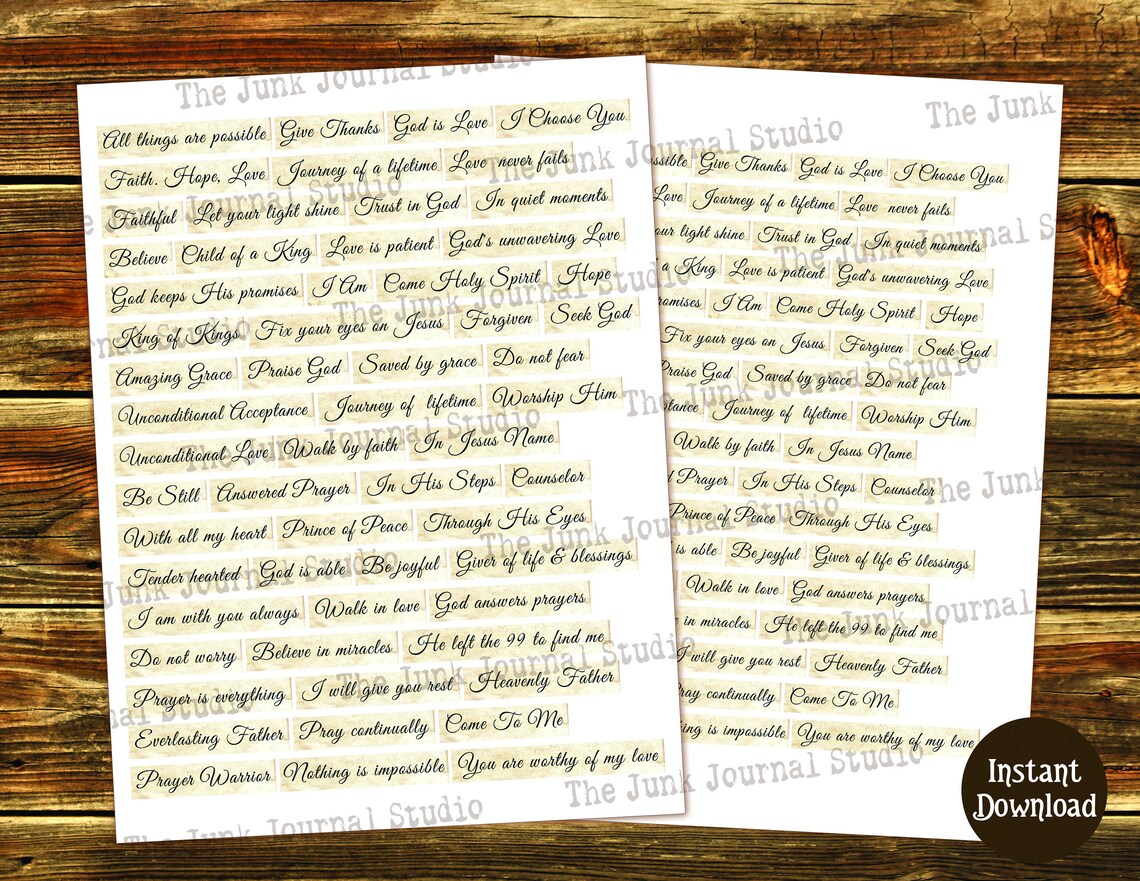 The Junk Journal Studio
All things are possible Give Thanks God is Love I Choose You
Faith, Hope, Love Journey of a lifetime Love never fails
Faithful Let your light shine Trust in God In quiet moments
Believe Child of a King Love is patient God's unwavering Love
God keeps His promises I Am Come Holy Spirit Hope
King of Kings Fix your eyes on Jesus Forgiven Seek God
Amazing Grace Praise God Saved by grace Do not fear
Unconditional Acceptance Journey of lifetime Worship Him
Unconditional Love Walk by faith In Jesus Name
Be Still Answered Prayer In His Steps Counselor
With all my heart Prince of Peace Through His Eyes
Tender hearted God is able Be joyful Giver of life & blessings
I am with you always Walk in love God answers prayers
Do not worry Believe in miracles He left the 99 to find me
Prayer is everything I will give you rest Heavenly Father
Everlasting Father Pray continually Come To Me
Prayer Warrior Nothing is impossible You are worthy of my love
The Junk Journal Studio
The Junk
ssible Give Thanks God is Love I Choose You
Love Journey of a lifetime Love never fails
our light shine Trust in God In quiet moments
a King Love is patient God's unwavering Love
omises I Am Come Holy Spirit Hope
Fix your eyes on Jesus Forgiven Seek God
Praise God Saved by grace Do not fear
tance Journey of lifetime Worship Him
Walk by faith In Jesus Name
d Prayer In His Steps Counselor
Prince of Peace Through His Eyes
is able Be joyful Giver of life & blessings
Walk in love God answers prayers
e in miracles He left the 99 to find me
I will give you rest Heavenly Father
ray continually Come To Me
hing is impossible You are worthy of my love
The Junk Journal Studio
Instant
Download